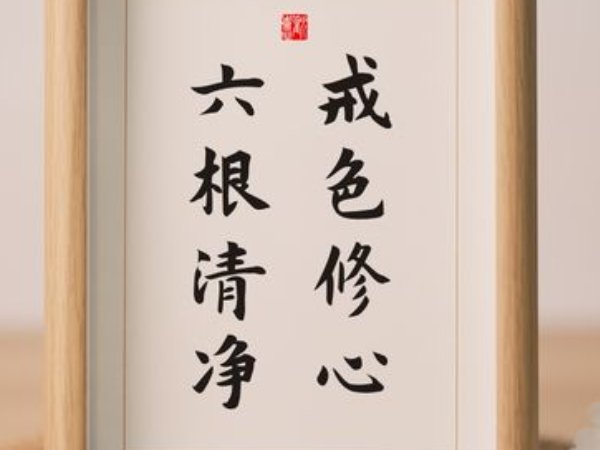 戒色修心
六根清净